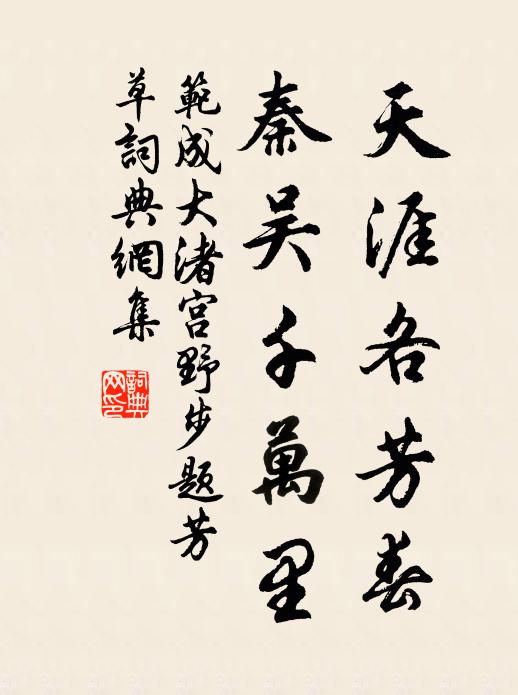 天涯各芳春
秦吴千萬里
範成大渚宫野步題芳
草詞典網集
詞典
网印